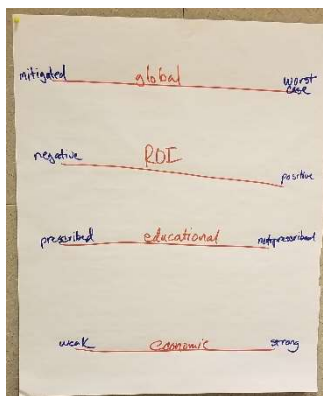 mitigated global worst case
negative ROI positive
prescribed educational not prescribed
weak economic strong